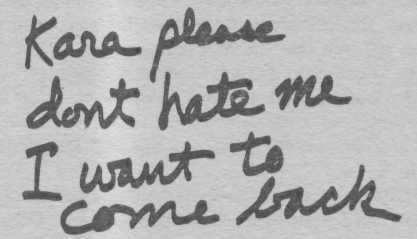 Kara please
dont hate me
I want to
come back